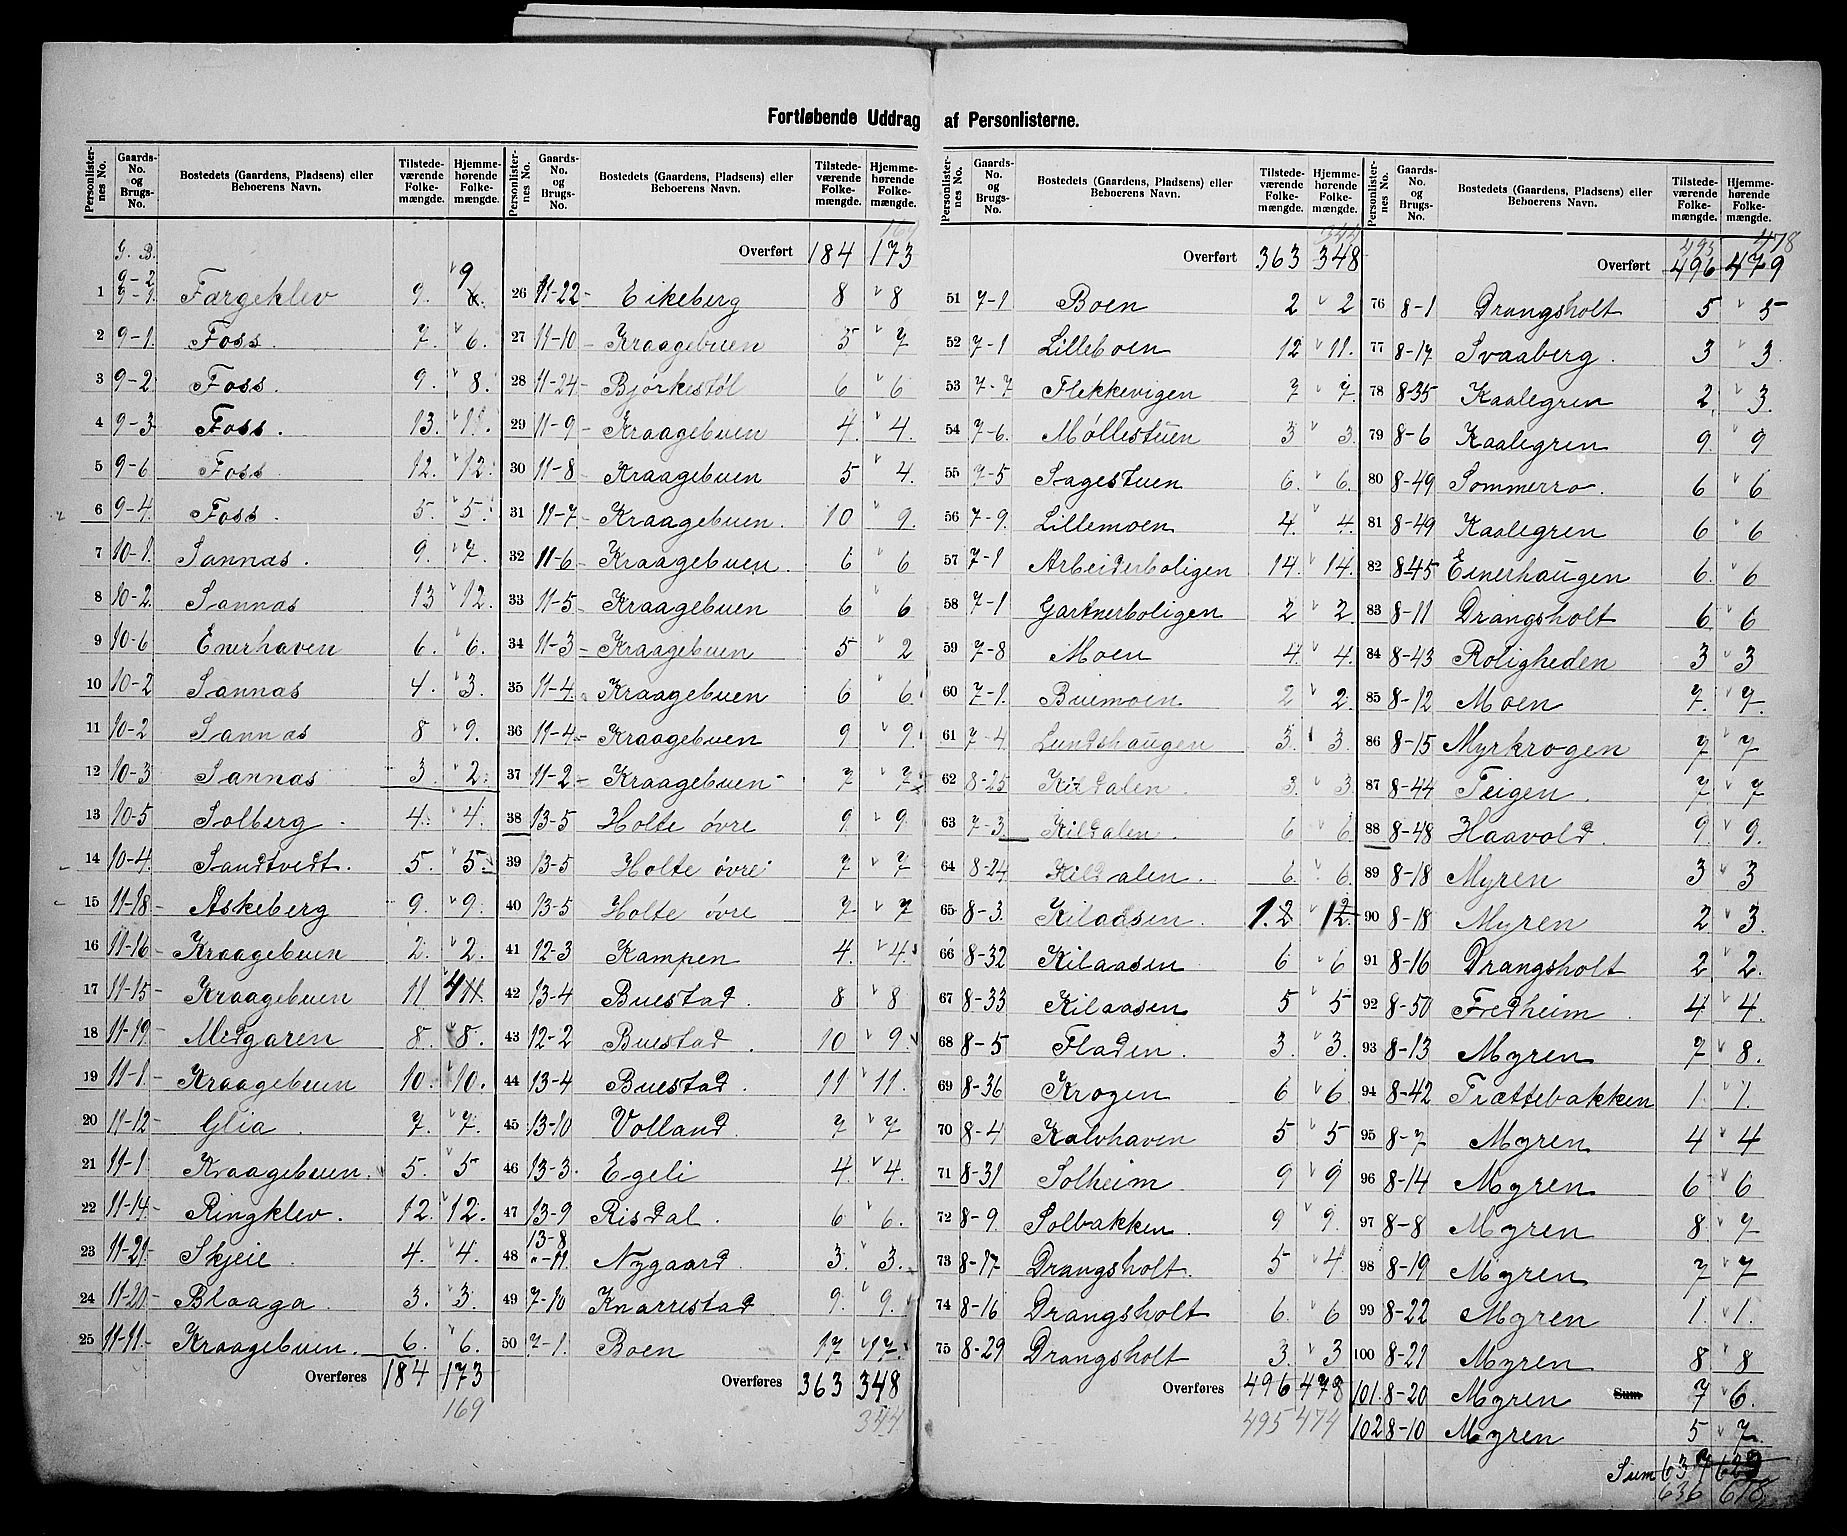 Fortløbende Uddrag af Personlisterne.
Personlisternes No. Gaards-No. og Brugs-No. Bostedets (Gaardens, Pladsens) eller Beboerens Navn. Tilstedeværende Folkemængde. Hjemmehørende Folkemængde.
G. B.
9-2
1 9-9 Færgeklev 9. 9
2 9-1 Foss. 7. 6.
3 9-2 Foss. 9. 8.
4 9-3 Foss. 13. 11.
5 9-6 Foss. 12. 12.
6 9-4 Foss. 5. 5.
7 10-1 Sannas. 9. 7.
8 10-2 Sannas 13 12.
9 10-6 Enerhaven 6. 6.
10 10-2 Sannas 4. 3.
11 10-2 Sannas 8 9.
12 10-3 Sannas 3. 2.
13 10-5 Solberg. 4. 4.
14 10-4 Sandtvedt. 5. 5.
15 11-18 Askeberg 9. 9.
16 11-16 Kraagebuen 2. 2.
17 11-15 Kraagebuen 11 4 11
18 11-19 Medgaren 8. 8.
19 11-1 Kraagebuen 10. 10.
20 11-12 Glia 7. 7.
21 11-1 Kraagebuen. 5. 5
22 11-14 Ringklev. 12. 12.
23 11-21 Skjeie. 4. 4.
24 11-20 Blaaga. 3. 3.
25 11-11 Kraagebuen. 6. 6.
Overføres 184 173
169
Personlisternes No. Gaards-No. og Brugs-No. Bostedets (Gaardens, Pladsens) eller Beboerens Navn. Tilstedeværende Folkemængde. Hjemmehørende Folkemængde.
169
Overført 184 173
26 11-22 Eikeberg 8 8
27 11-10 Kraagebuen 5 7
28 11-24 Bjørkestøl 6 6
29 11-9 Kraagebuen 4. 4.
30 11-8 Kraagebuen 5 4.
31 11-7 Kraagebuen. 10 9.
32 11-6 Kraagebuen. 6 6
33 11-5 Kraagebuen 6 6
34 11-3 Kraagebuen 5 2
35 11-4 Kraagebuen 6 6
36 11-4 Kraagebuen 9 9
37 11-2 Kraagebuen 7 7
38 13-5 Holte øvre 9. 9.
39 13-5 Holte øvre 7 7
40 13-5 Holte øvre 7. 7
41 12-3 Kampen 4. 4
42 13-4 Buestad. 8 8
43 12-2 Buestad. 10 9.
44 13-4 Buestad. 11 11
45 13-10 Volland. 7 7
46 13-3. Egeli 4. 4.
47 13-9 Risdal. 6 6.
13-8
48 "-11 Nygaard. 3. 3.
49 7-10 Knarrestad 9. 9.
50 7-1 Boen 17 17.
Overføres 363 348
344
Personlisternes No. Gaards-No. og Brugs-No. Bostedets (Gaardens, Pladsens) eller Beboerens Navn. Tilstedeværende Folkemængde. Hjemmehørende Folkemængde.
344
Overført 363 348
51 7-1 Boen 2 2
52 7-1 Lilleboen 12 11.
53 7-7 Flekkevigen 7 7.
54 7-6. Møllestuen 3 3.
55 7-5 Sagestuen 6. 6.
56 7-9. Lillemoen 4. 4.
57 7-1 Arbeiderboligen 14. 14.
58 7-1 Gartnerboligen 2 2.
59 7-8 Moen 4. 4.
60 7-1. Buemoen 2 2.
61 7-4 Lundshaugen 3. 3.
62 8-25 Kildalen. 3. 3
63 7-3 Kildalen 6 6.
64 8-24 Kildalen. 6. 6.
65 8-3. Kilaasen 12 12
66 8-32 Kilaasen 6 6
67 8-33 Kilaasen 5 5
68 8-5 Fladen. 3. 3.
69 8-36 Krogen 6 6
70 8-4 Kalvhaven 5 5
71 8-31 Solheim. 9 9
72 8-9. Solbakken 9 9.
73 8-17 Drangsholt. 5 4.
74 8-16 Drangsholt 6. 6
75 8-29 Drangsholt 3. 3
Overføres 496 478
495 474
Personlisternes No. Gaards-No. og Brugs-No. Bostedets (Gaardens, Pladsens) eller Beboerens Navn. Tilstedeværende Folkemængde. Hjemmehørende Folkemængde.
495 478
Overført 496 479
76 8-1 Drangsholt 5 5
77 8-17 Svaaberg. 3 3.
78 8-35 Kaalegren 2. 3.
79 8-6 Kaalegren 9. 9
80 8-49 Sommerro. 6 6
81 8-49 Kaalegren 6 6
82 8-45 Einerhaugen 6. 6
83 8-11 Drangsholt 6 6
84 8-43 Roligheden 3 3
85 8-12 Moen 7. 7.
86 8-15 Myrkrogen 7 7
87 8-44 Teigen. 7 7
88 8-48 Haavold. 9. 9.
89 8-18 Myren 3 3
90 8-18 Myren 2 3.
91 8-16 Drangsholt 2 2.
92 8-50 Fredheim. 4 4.
93 8-13 Myren 7 8.
94 8-42 Trættebakken 1. 1.
95 8-7 Myren 4 4
96 8-14 Myren 6 6.
97 8-8 Myren 8. 7
98 8-19 Myren 7 7
99 8-22 Myren 1. 1.
100 8-21 Myren 8 8
101. 8-20 Myren Sum 7 6.
102 8-10 Myren 5 7.
Sum 637 623
636 618